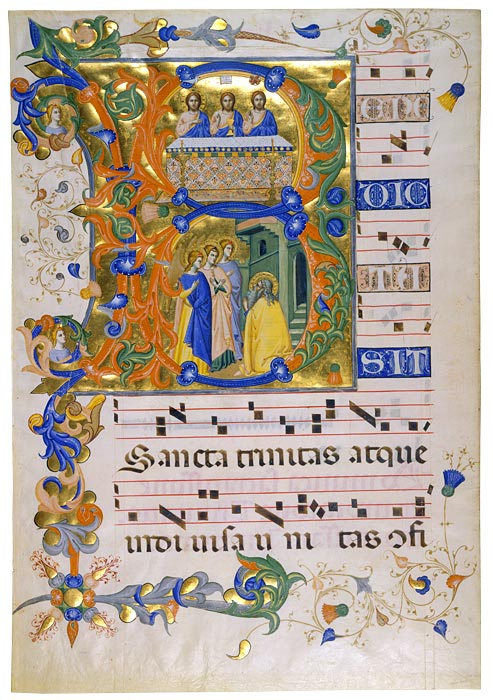 B
ENE
DIC
TA
SIT
Sancta trinitas atque
indi visa u ni tas ɔfi